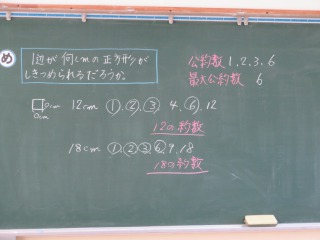 め
1辺が何cmの正方形が
しきつめられるだろうか。
公約数 1, 2, 3, 6
最大公約数 6
□cm
□cm
12cm ① , ② , ③ 4, ⑥ , 12
12の約数
18cm ① , ② , ③ , ⑥ , 9, 18
18の約数